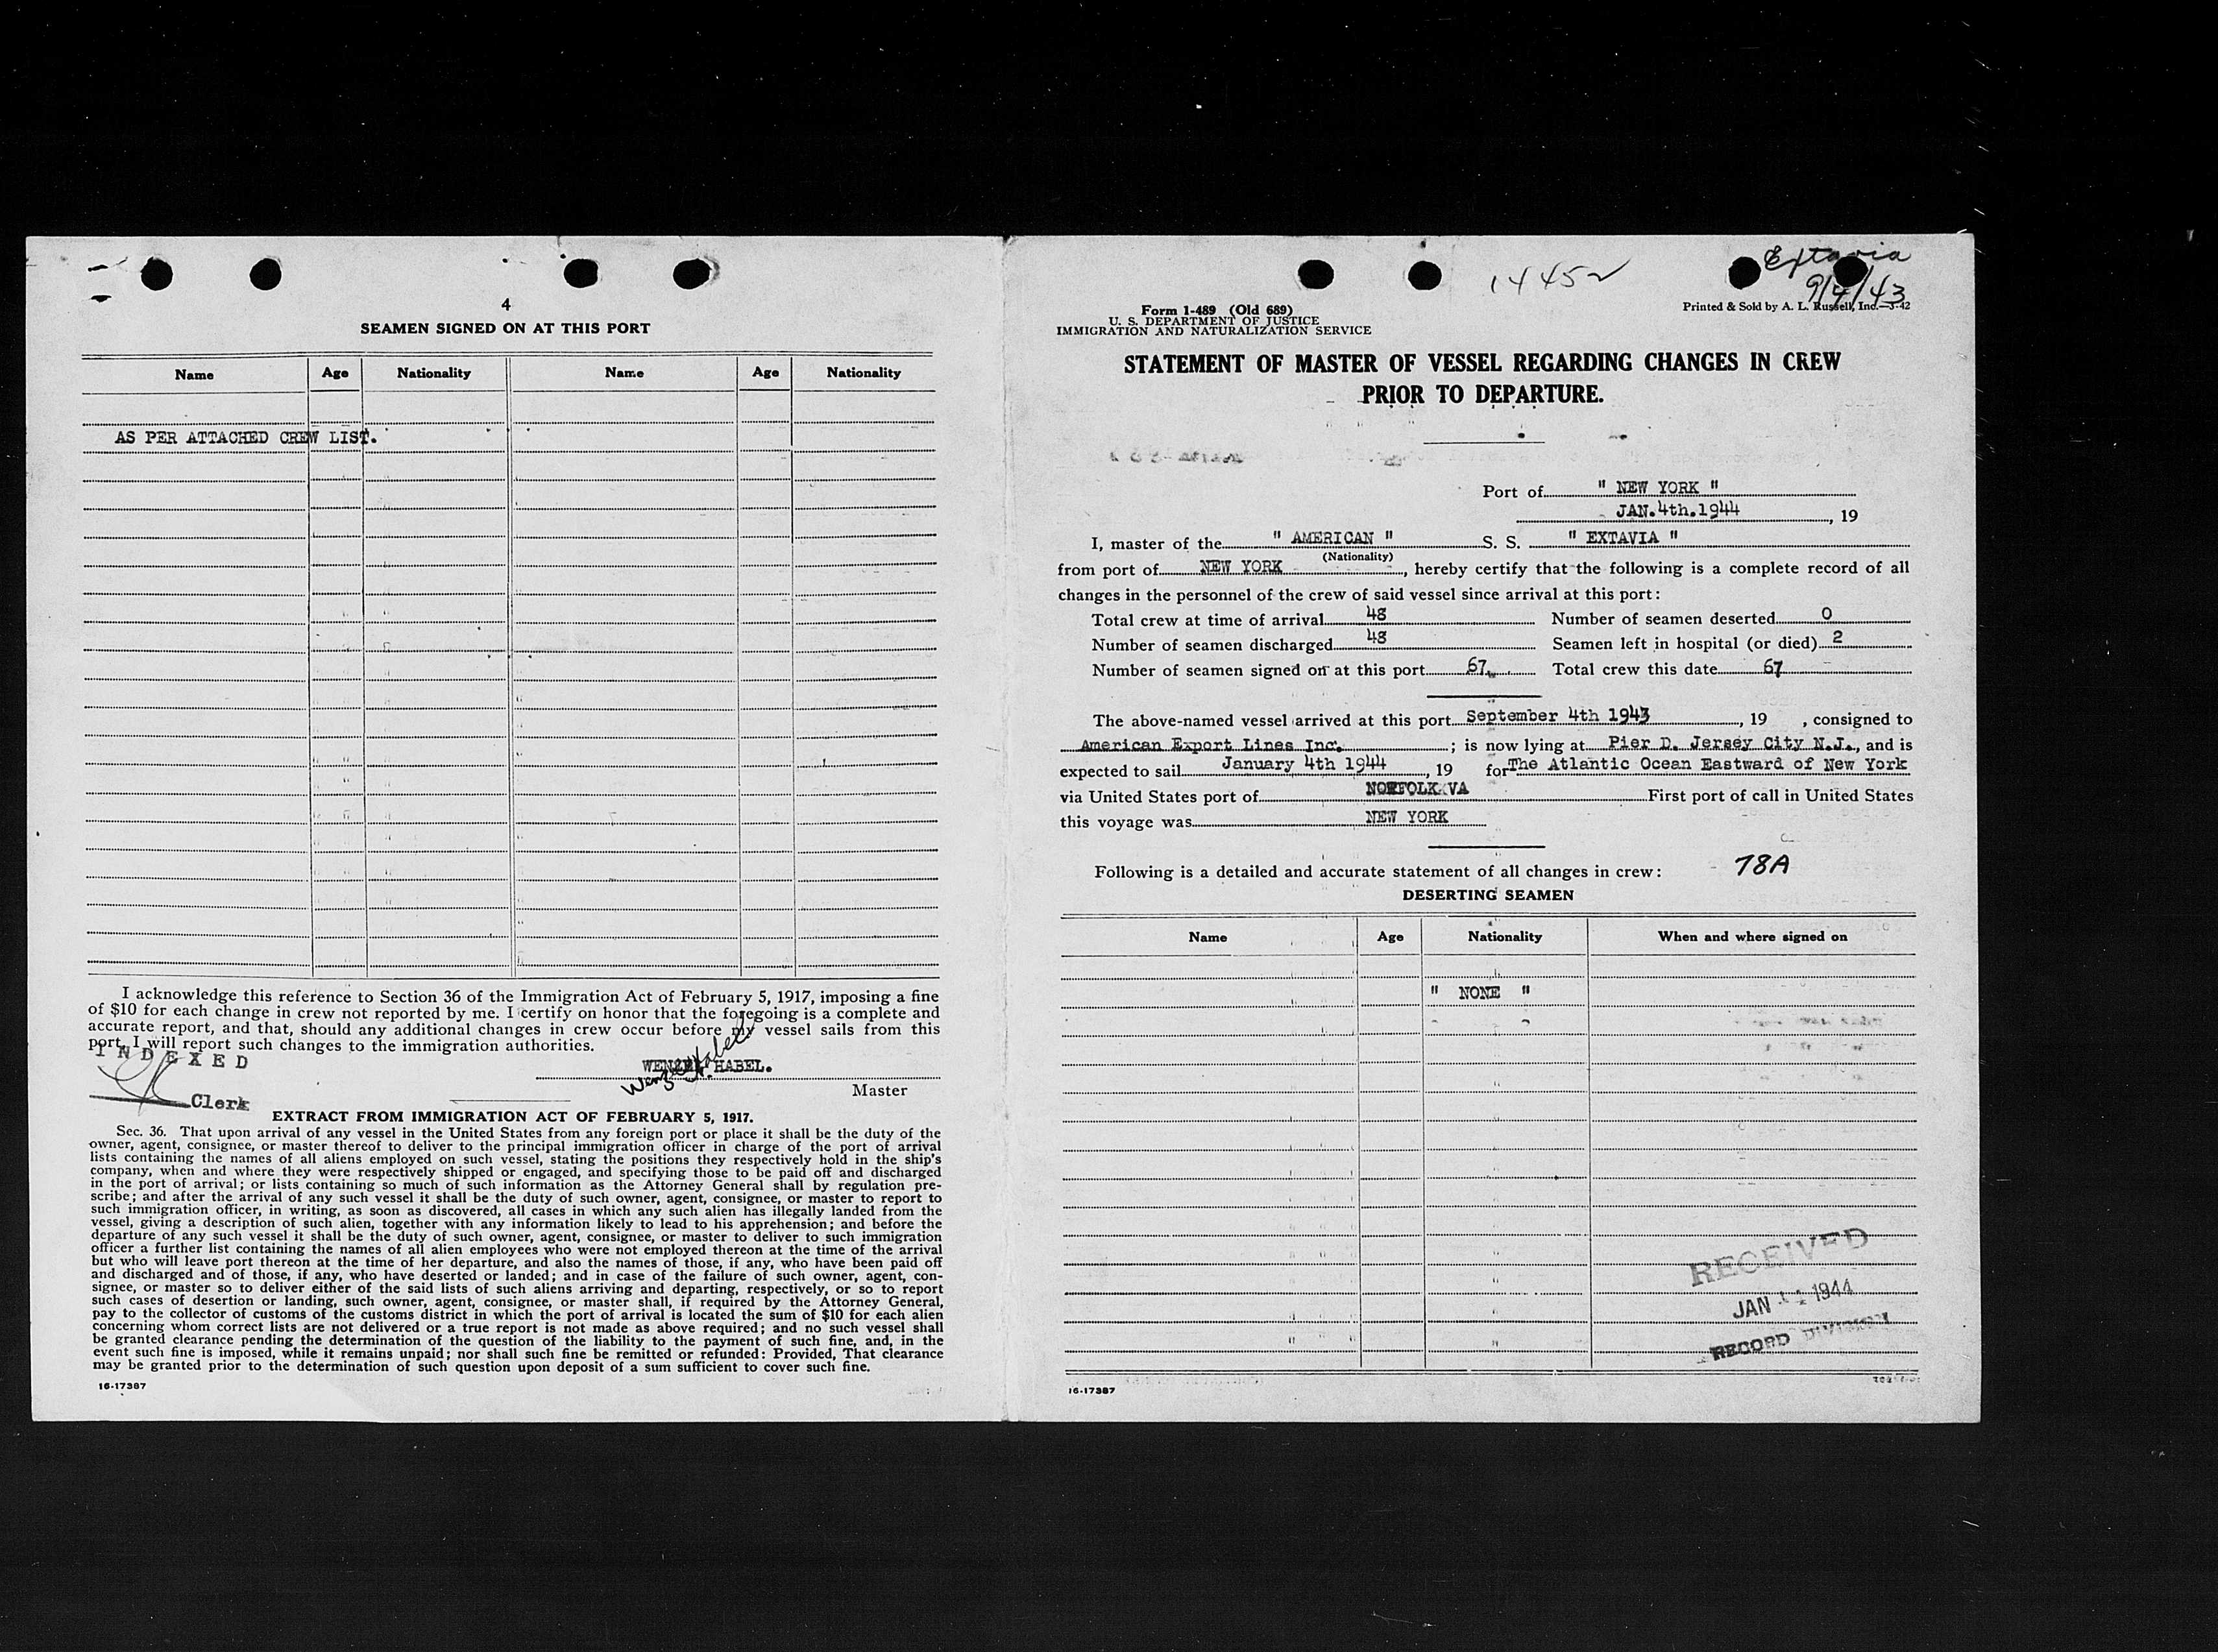 4
SEAMEN SIGNED ON AT THIS PORT
Name Age Nationality Name Age Nationality
AS PER ATTACHED CREW LIST.
I acknowledge this reference to Section 36 of the Immigration Act of February 5, 1917, imposing a fine
of $10 for each change in crew not reported by me. I certify on honor that the foregoing is a complete and
accurate report, and that, should any additional changes in crew occur before my vessel sails from this
port, I will report such changes to the immigration authorities.
INDEXED
Wenzel Habel
WENZEL HABEL.
Master
Clerk
EXTRACT FROM IMMIGRATION ACT OF FEBRUARY 5, 1917.
Sec. 36. That upon arrival of any vessel in the United States from any foreign port or place it shall be the duty of the
owner, agent, consignee, or master thereof to deliver to the principal immigration officer in charge of the port of arrival
lists containing the names of all aliens employed on such vessel, stating the positions they respectively hold in the ship's
company, when and where they were respectively shipped or engaged, and specifying those to be paid off and discharged
in the port of arrival; or lists containing so much of such information as the Attorney General shall by regulation pre-
scribe; and after the arrival of any such vessel it shall be the duty of such owner, agent, consignee, or master to report to
such immigration officer, in writing, as soon as discovered, all cases in which any such alien has illegally landed from the
vessel, giving a description of such alien, together with any information likely to lead to his apprehension; and before the
departure of any such vessel it shall be the duty of such owner, agent, consignee, or master to deliver to such immigration
officer a further list containing the names of all alien employees who were not employed thereon at the time of the arrival
but who will leave port thereon at the time of her departure, and also the names of those, if any, who have been paid off
and discharged and of those, if any, who have deserted or landed; and in case of the failure of such owner, agent, con-
signee, or master so to deliver either of the said lists of such aliens arriving and departing, respectively, or so to report
such cases of desertion or landing, such owner, agent, consignee, or master shall, if required by the Attorney General,
pay to the collector of customs of the customs district in which the port of arrival is located the sum of $10 for each alien
concerning whom correct lists are not delivered or a true report is not made as above required; and no such vessel shall
be granted clearance pending the determination of the question of the liability to the payment of such fine, and, in the
event such fine is imposed, while it remains unpaid; nor shall such fine be remitted or refunded: Provided, That clearance
may be granted prior to the determination of such question upon deposit of a sum sufficient to cover such fine.
16-17387
Extavia
9/4/43
14452
Form 1-489 (Old 689)
U. S. DEPARTMENT OF JUSTICE
IMMIGRATION AND NATURALIZATION SERVICE
Printed & Sold by A. L. Russell, Inc.—3-42
STATEMENT OF MASTER OF VESSEL REGARDING CHANGES IN CREW
PRIOR TO DEPARTURE.
Port of " NEW YORK "
JAN.4th.1944, 19
I, master of the " AMERICAN " S. S. " EXTAVIA "
(Nationality)
from port of NEW YORK, hereby certify that the following is a complete record of all
changes in the personnel of the crew of said vessel since arrival at this port:
Total crew at time of arrival 48 Number of seamen deserted 0
Number of seamen discharged 48 Seamen left in hospital (or died) 2
Number of seamen signed on at this port 67 Total crew this date 67
The above-named vessel arrived at this port September 4th 1943, 19 , consigned to
American Export Lines Inc.; is now lying at Pier D. Jersey City N.J., and is
expected to sail January 4th 1944, 19 for The Atlantic Ocean Eastward of New York
via United States port of NORFOLK VA First port of call in United States
this voyage was NEW YORK
Following is a detailed and accurate statement of all changes in crew: 78A
DESERTING SEAMEN
Name Age Nationality When and where signed on
" NONE "
RECEIVED
JAN 1944
RECORD DIVISION
16-17387